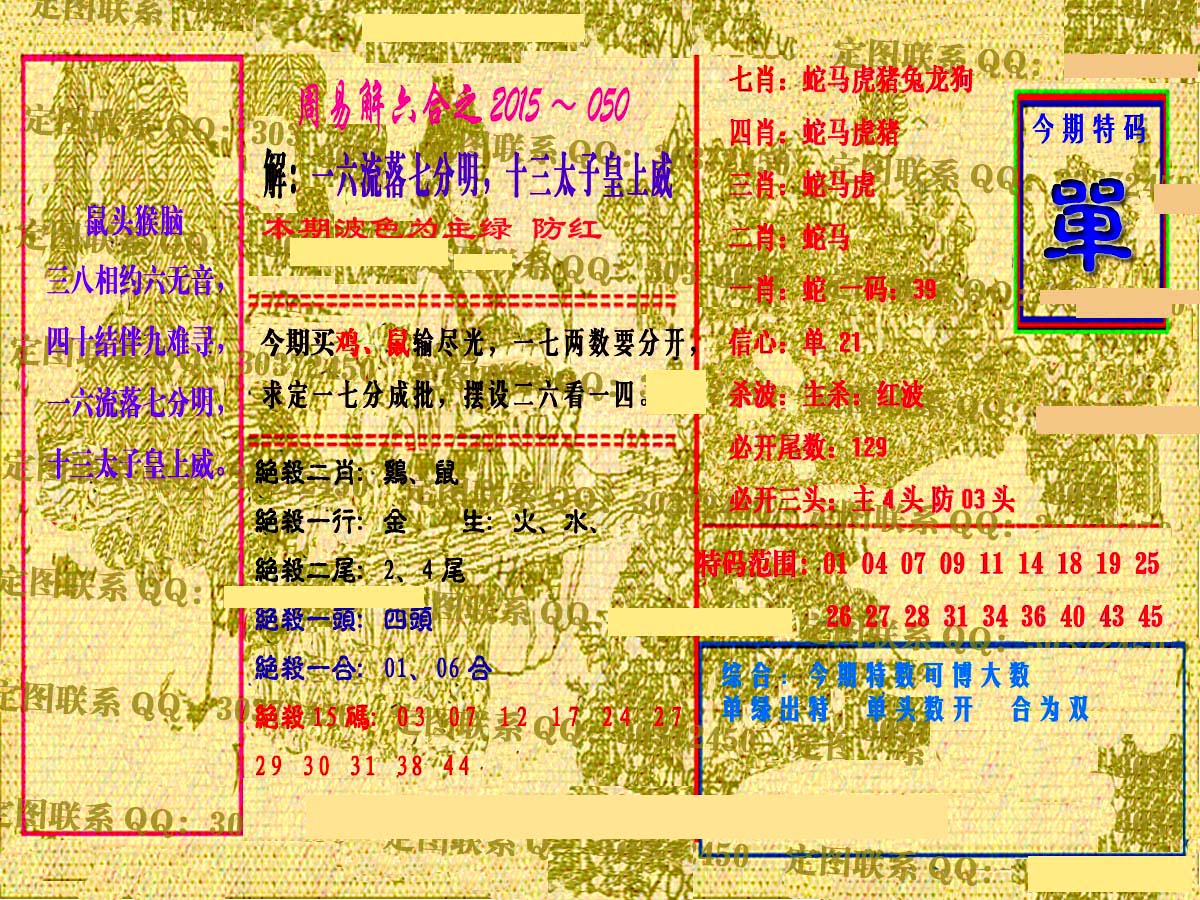 鼠头猴脑
三八相约六无音，
四十结伴九难寻，
一六流落七分明，
十三太子皇上威。
周易解六合之 2015～050
解：一六流落七分明，十三太子皇上威
本期波色为主绿 防红
今期买鸡、鼠输尽光，一七两数要分开，
求定一七分成批，摆设二六看一四。
絕殺二肖：鷄、鼠
絕殺一行：金 生：火、水、
絕殺二尾：2、4尾
絕殺一頭：四頭
絕殺一合：01、06合
絕殺15碼：03 07 12 17 24 27
29 30 31 38 44
七肖：蛇马虎猪兔龙狗
四肖：蛇马虎猪
三肖：蛇马虎
二肖：蛇马
一肖：蛇 一码：39
信心：单 21
杀波：主杀：红波
必开尾数：129
必开三头：主4头防03头
今期特码
單
特码范围：01 04 07 09 11 14 18 19 25
26 27 28 31 34 36 40 43 45
综合：今期特数可博大数
单绿出特 单头数开 合为双
定图联系 QQ：